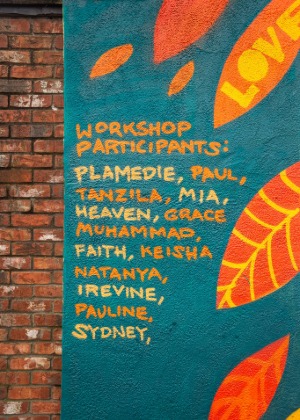 LOVE
WORKSHOP
PARTICIPANTS:
PLAMEDIE, PAUL,
TANZILA, MIA,
HEAVEN, GRACE
MUHAMMAD,
FAITH, KEISHA
NATANYA,
IREVINE,
PAULINE,
SYDNEY,